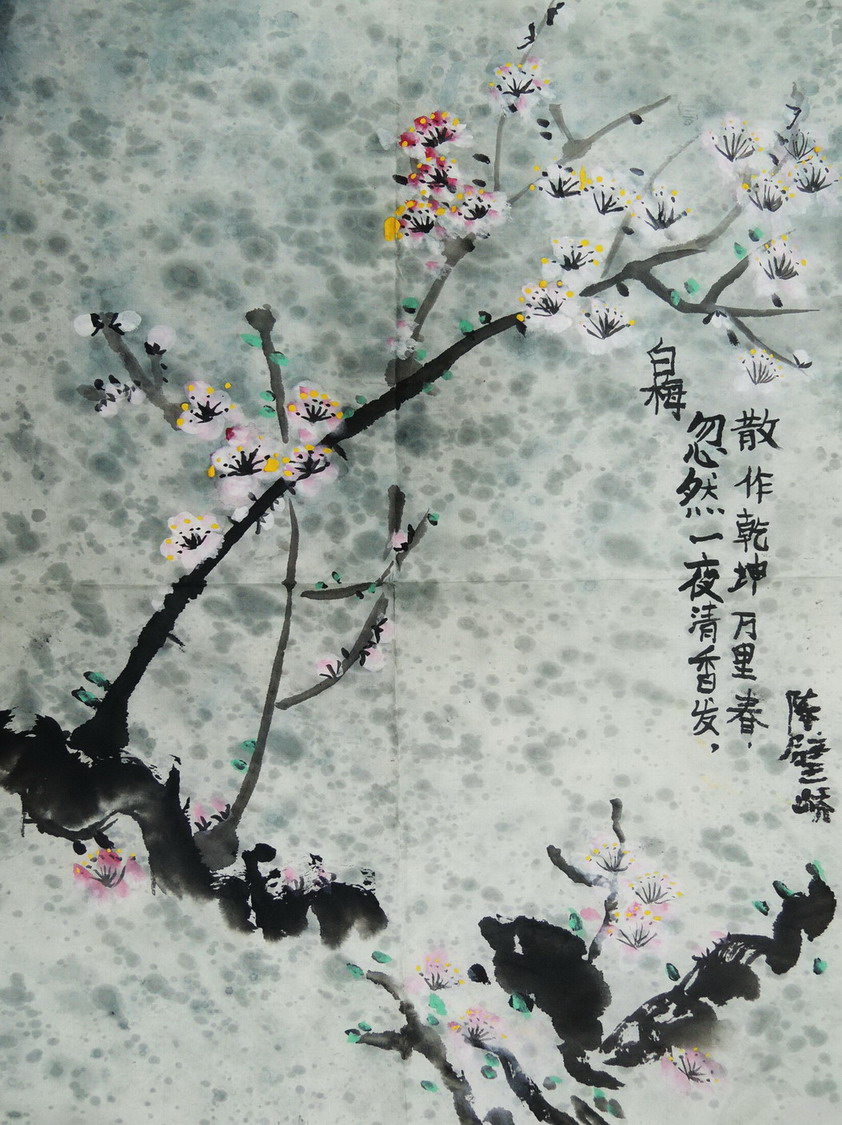 白梅
忽然一夜清香发，
散作乾坤万里春.
陈